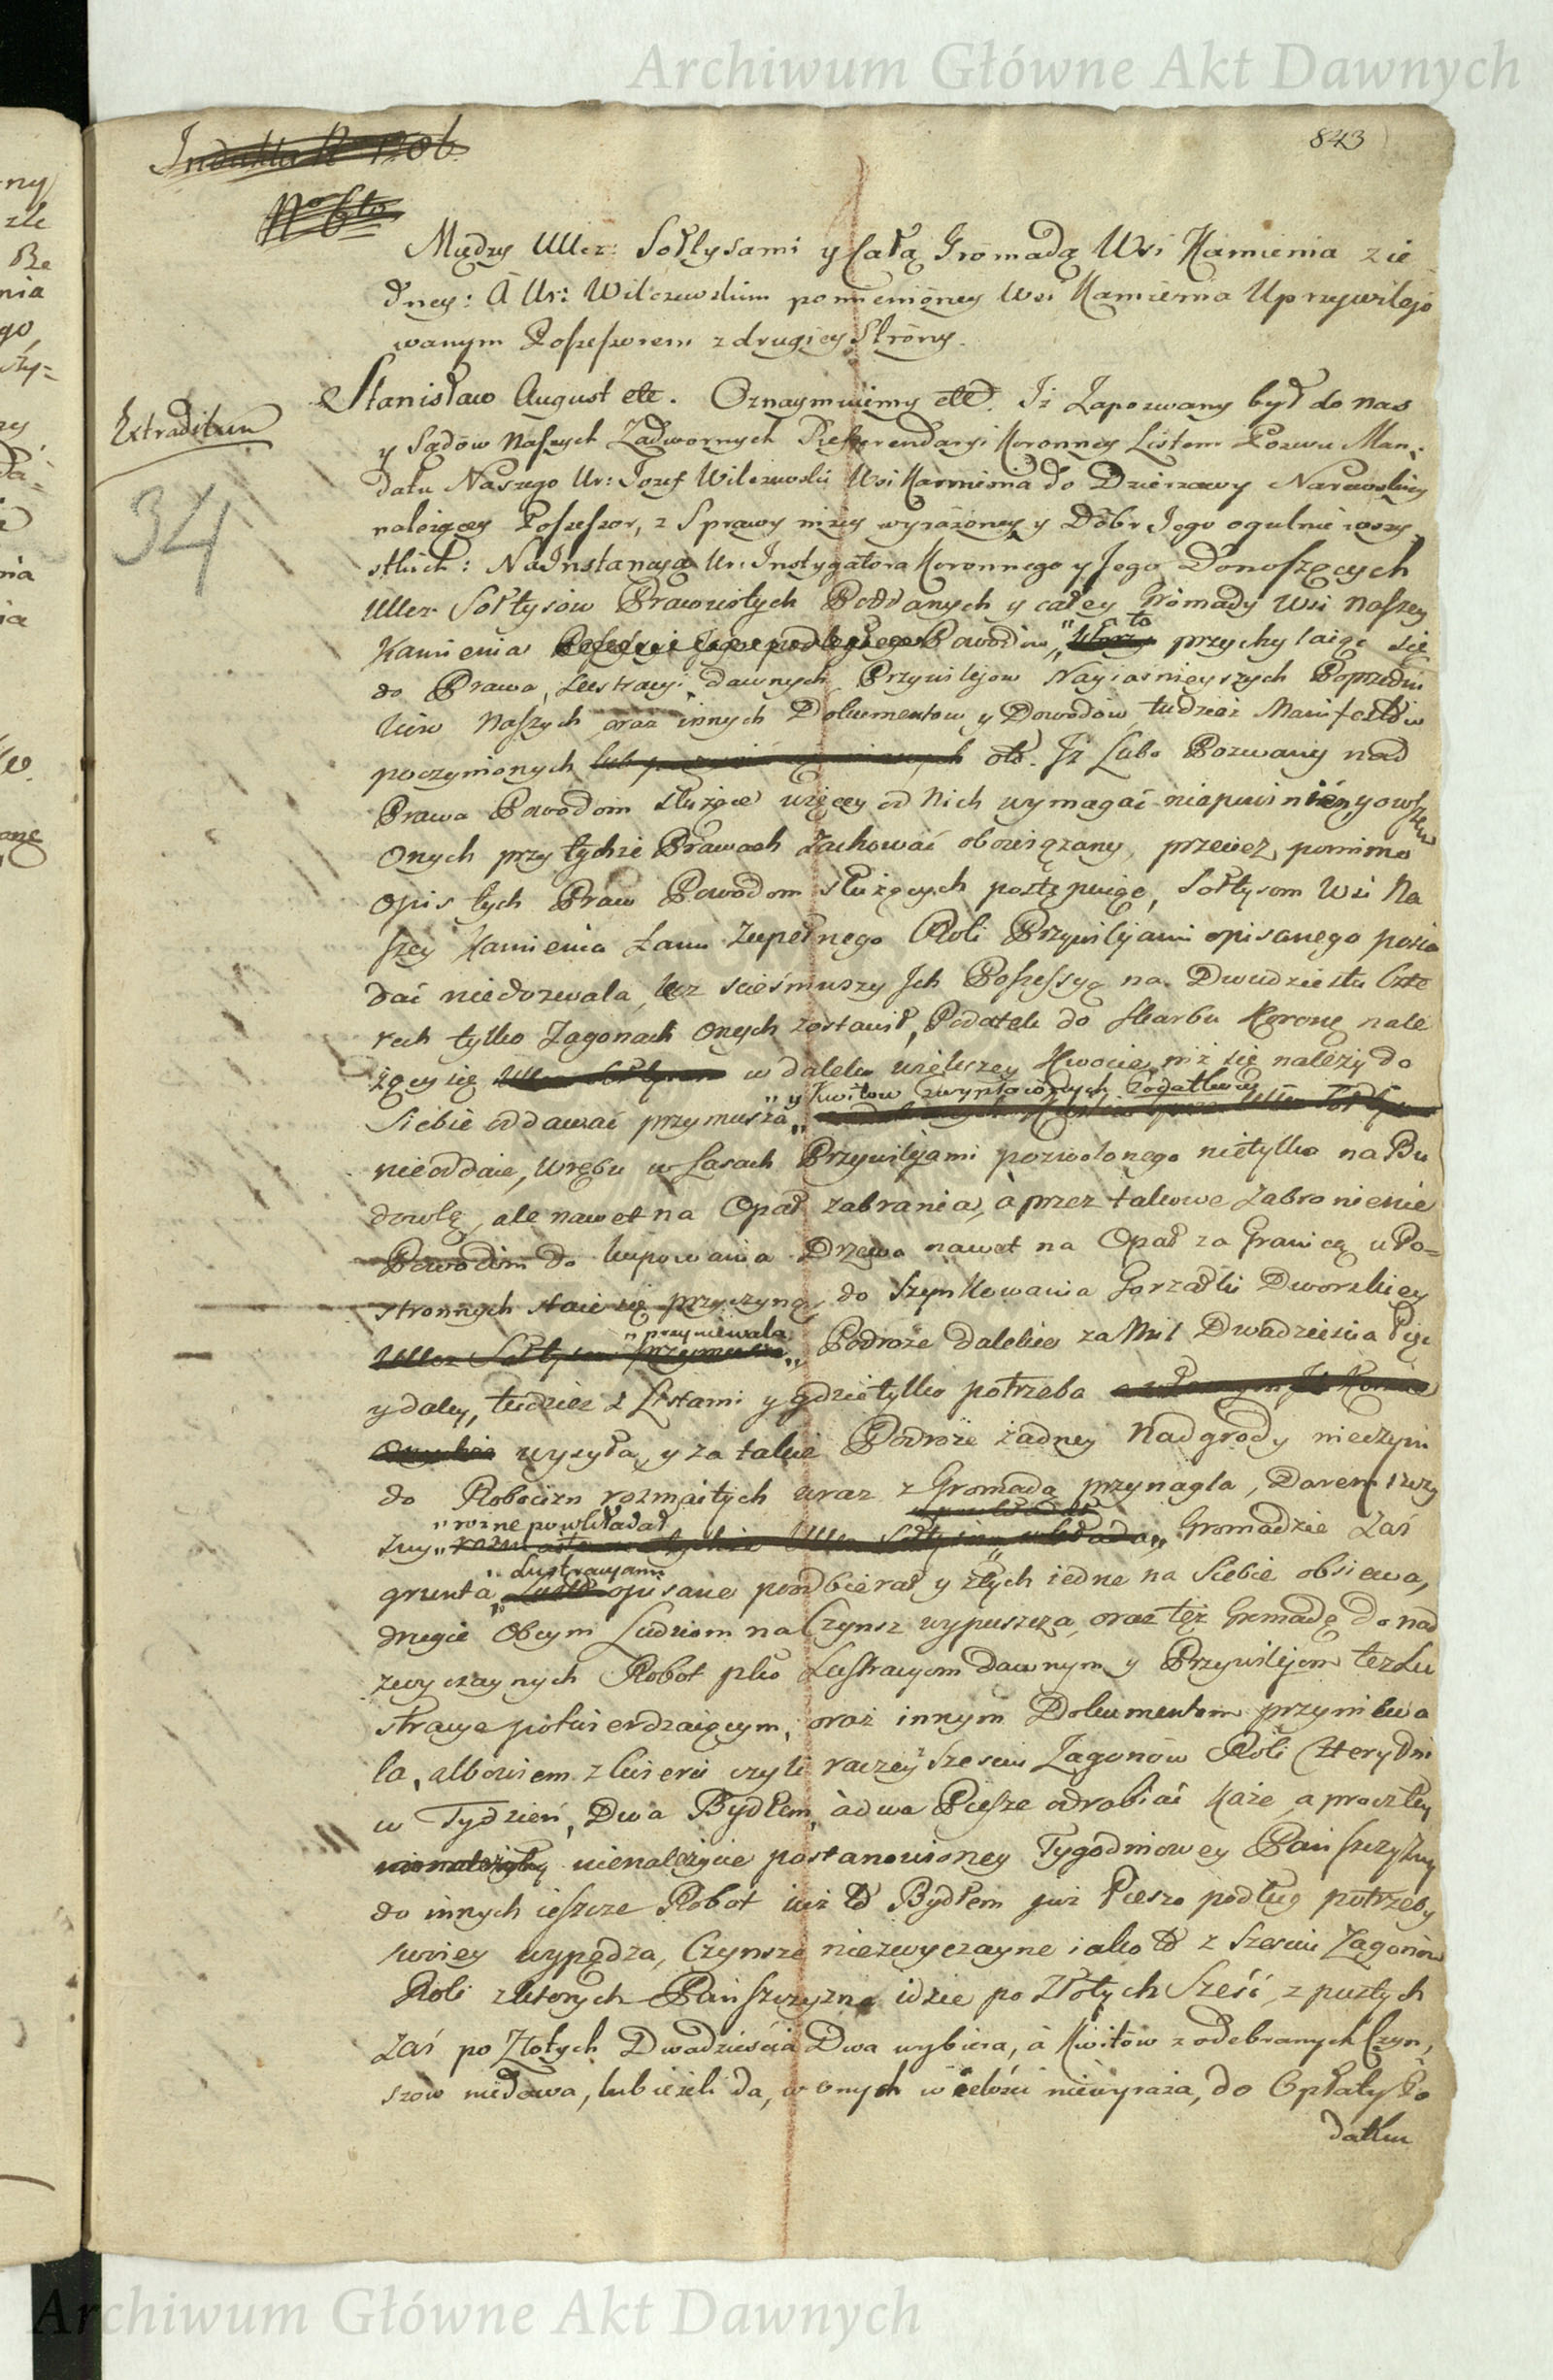 Archiwum Główne Akt Dawnych
843
Indukta N 1206.
No 6to
Między Ullcz: Sołtysami y całą Gromadą Wsi Kamienia z ie
dney: A Ur: Wilczewskim pomienioney Wsi Kamienia Uprzywilejo
wanym Possessorem z drugiey Strony.
Extraditum
34
Stanisław August etc. Oznaymuiemy etc. Iż Zapozwany był do nas
y Sądow Naszych Zadwornych Referendaryi Koronney Listem Pozwu Man
datu Naszego Ur: Jozef Wilczewski Wsi Kamienia do Dzierzawy Narewskiey
należącey Possessor, z Sprawy niżey wyrażoney y Dobr Jego ogulnie wszy
stkich: Na Instancyą Ur: Instygatora Koronnego y Jego Donoszących
Ullcz Sołtysow Prawoistych Poddanych y całey Gromady Wsi naszey
Kamienia Powodow, "a to przychylaiąc się
do Prawa, Lustracyi, dawnych Przywilejow Nayiaśnieyszych Poprzedni
kow Naszych oraz innych Dokumentow y Dowodow, tudzież Manifestow
poczynionych oto. Iż Lubo Pozwany nad
Prawa Powodom służące więcey od Nich wymagać niepowinien y owszem
Onych przy tychże Prawach zachować obowiązany, przecież pomimo
opis tych Praw Powodom służących postępuiąc, Sołtysom Wsi Na
szey Kamienia Łanu Zupełnego Roli Przywilejami opisanego posia
dać niedozwala, lecz scieśniwszy Ich Possessyą na Dwudziestu Czte
rech tylko Zagonach onych zostawił, Podatek do Skarbu Korone nale
żący się w daleko większey Kwocie, niż się należy do
Siebie oddawać przymusza, "y Kwitow z wypłaconych Podatkow
nieoddaie, Wrębu w Lasach Przywilejami pozwolonego nietylko na Bu
dowlę, ale nawet na Opał zabrania, à przez takowe Zabronienie
Powodom do kupowania Drzewa nawet na Opał za Granicą u Po=
stronnych staie się przyczyną, do Szynkowania Gorzałki Dworskiey
Ullcz Sołtysow przymusza "przyniewala, Podroże dalekie za Mil Dwadzieścia Pięć
y daley, tudzież z Listami y gdzie tylko potrzeba
wysyła, y za takie Podroże żadney Nadgrody nieczyni
do Robocizn rozmaitych wraz z Gromadą przynagla, Daremszczy
zny "rożne powkładał Gromadzie Zaś
grunta "Lustracyami opisane poodbierał y z tych iedne na Siebie obsiewa,
drugie Obcym Ludziom na Czynsz wypuszcza, oraz też Gromadę do nad
zwyczaynych Robot pko Lustracyom dawnym y Przywilejom też Lu
stracye potwierdzaiącym, oraz innym Dokumentom przyniewa
la, albowiem z czyli raczey Szesciu Zagonow Roli Cztery dni
w Tydzień, Dwa Bydłem, à dwa Piesze odrabiać każe, a procz tey
nienależycie postanowioney Tygodniowey Pańszczyzny
do innych ieszcze Robot iuż to Bydłem iuż Pieszo podług potrzeby
swoiey wypędza, Czynsze niezwyczayne iako to z Szesciu Zagonow
Roli z ktorych Pańszczyzna idzie po Złotych Sześć, z pustych
Zaś po Złotych Dwadzieścia Dwa wybiera, à Kwitow z odebranych Czyn,
szow niedawa, lub ieżeli da, w onych w całości niewyraża, do Opłaty Po
datku
Archiwum Główne Akt Dawnych